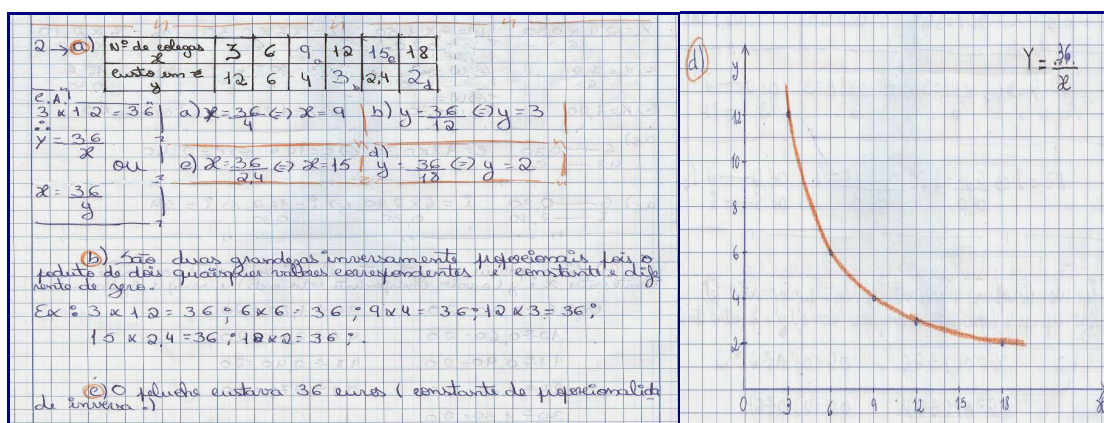 2 → a) Nº de colegas x 3 6 9a 12 15c 18
Custo em € y 12 6 4 3b 2,4 2d
C.A.
3 x 12 = 36
∴
y = 36/x
ou
x = 36/y
a) x = 36/4 (=) x = 9
b) y = 36/12 (=) y = 3
c) x = 36/2,4 (=) x = 15
d) y = 36/18 (=) y = 2
b) São duas grandezas inversamente proporcionais pois o
poduto de dois quaisquer valores correspondentes é constante e dife
rente de zero.
Ex: 3 x 12 = 36 ; 6 x 6 = 36 ; 9 x 4 = 36 ; 12 x 3 = 36 ;
15 x 2,4 = 36 ; 18 x 2 = 36 ;.
c) O peluche custava 36 euros (constante de proporcionalida
de inversa.)
d)
y
Y = 36/x
12
10
8
6
4
2
0 3 6 9 12 15 18 x